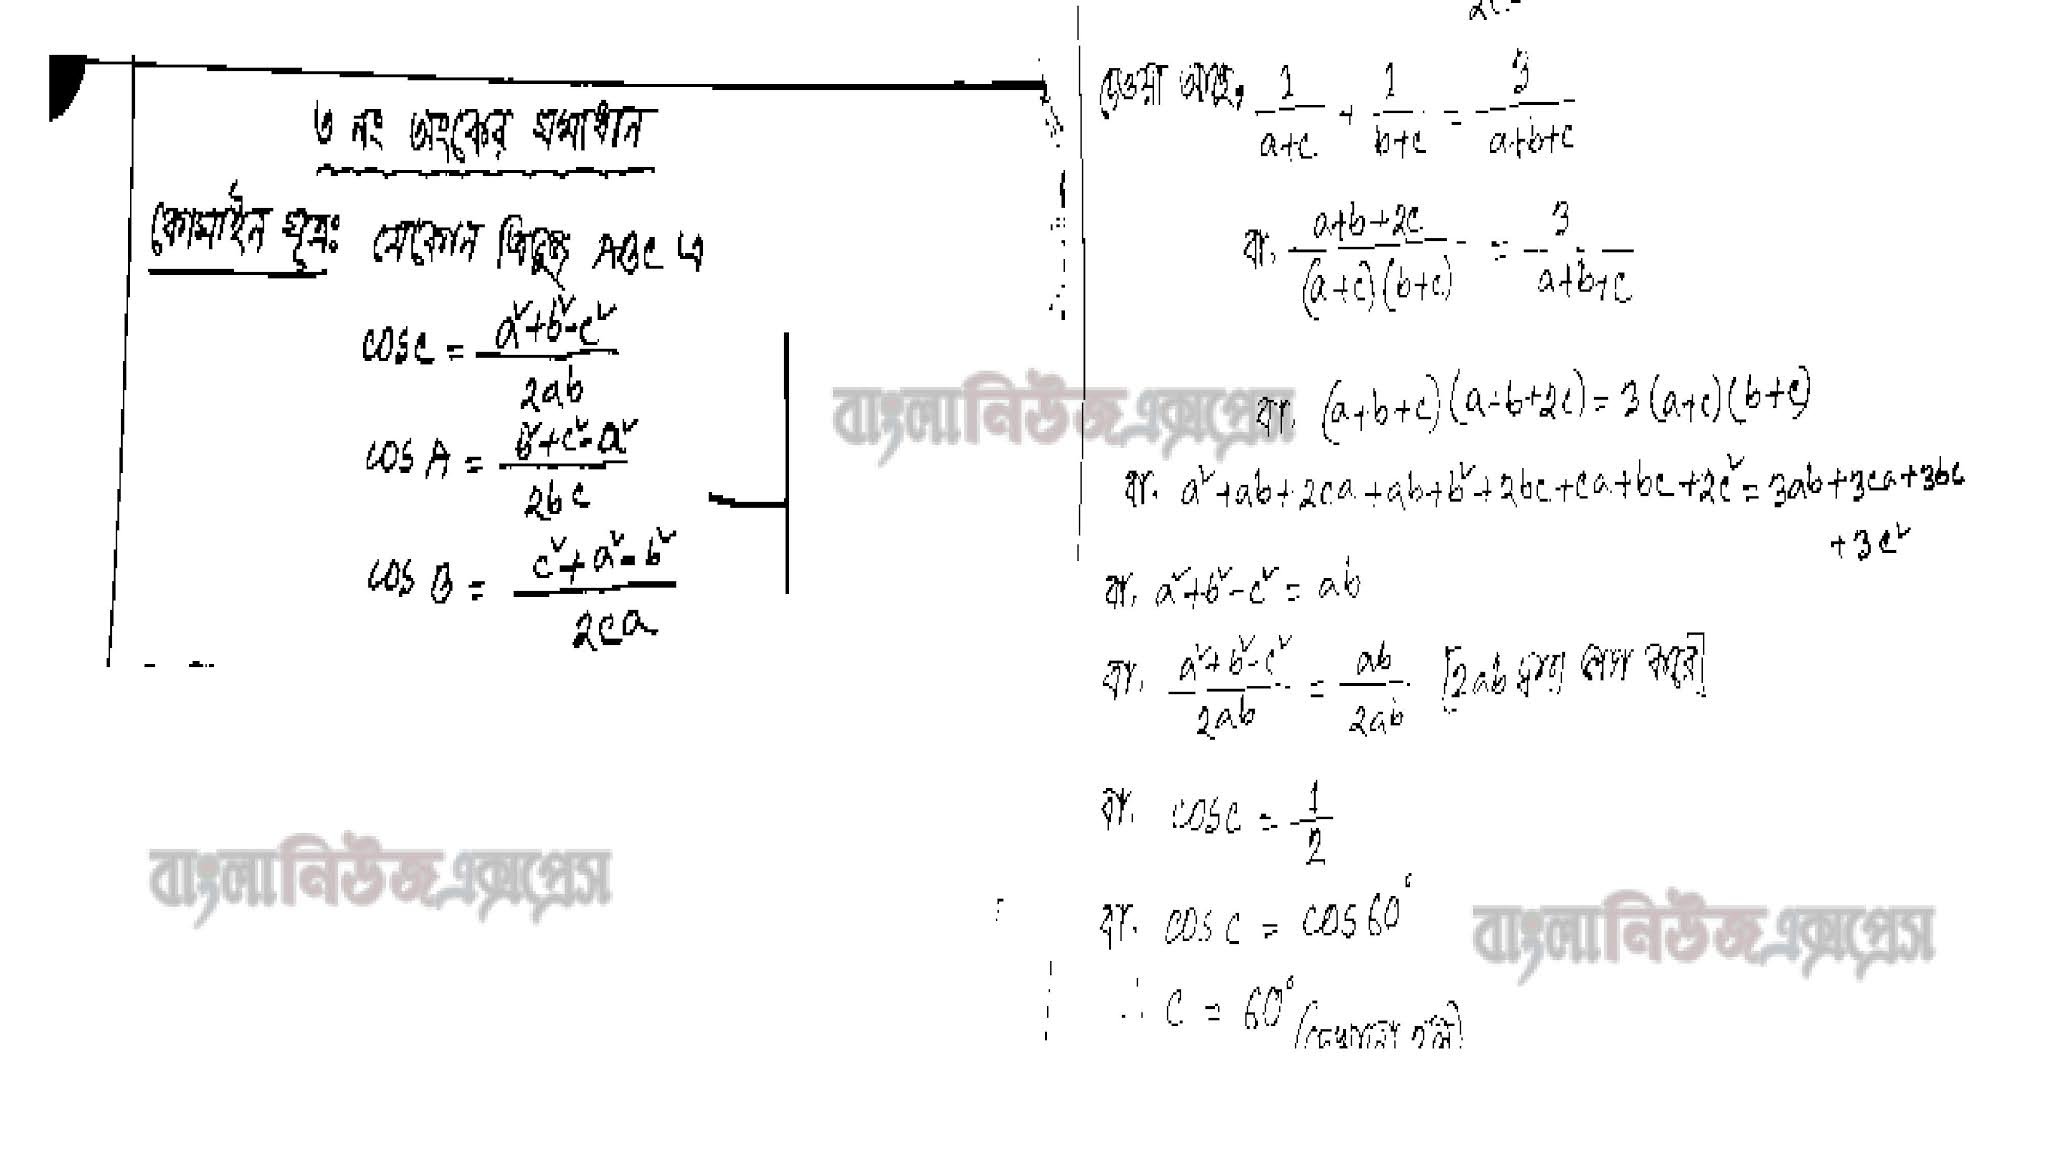 ৩ নং অংকের সমাধান
কোসাইন সূত্রঃ যেকোন ত্রিভুজ ABC এ
cosC = a²+b²-c² / 2ab
cos A = b²+c²-a² / 2bc
cos B = c²+a²-b² / 2ca
দেওয়া আছে, 1/a+c + 1/b+c = 3/a+b+c
বা, a+b+2c / (a+c)(b+c) = 3 / a+b+c
বা, (a+b+c)(a+b+2c) = 3(a+c)(b+c)
বা, a²+ab+2ca+ab+b²+2bc+ca+bc+2c² = 3ab+3ca+3bc
+3c²
বা, a²+b²-c² = ab
বা, a²+b²-c² / 2ab = ab / 2ab [2ab দ্বারা ভাগ করে]
বা, cosC = 1/2
বা, cos C = cos 60°
∴ C = 60° (দেখানো হলো)
বাংলানিউজএক্সপ্রেস
বাংলানিউজএক্সপ্রেস
বাংলানিউজএক্সপ্রেস